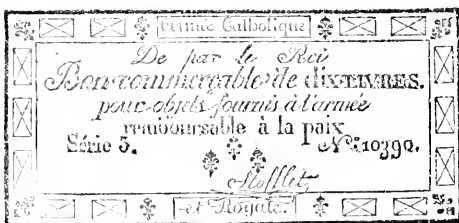 Armée Catholique
De par le Roi
Bon commerçable de dix LIVRES.
pour objets fournis à l'armée
remboursable à la paix
Série 5. N° 10390.
Stofflet
et Royale.